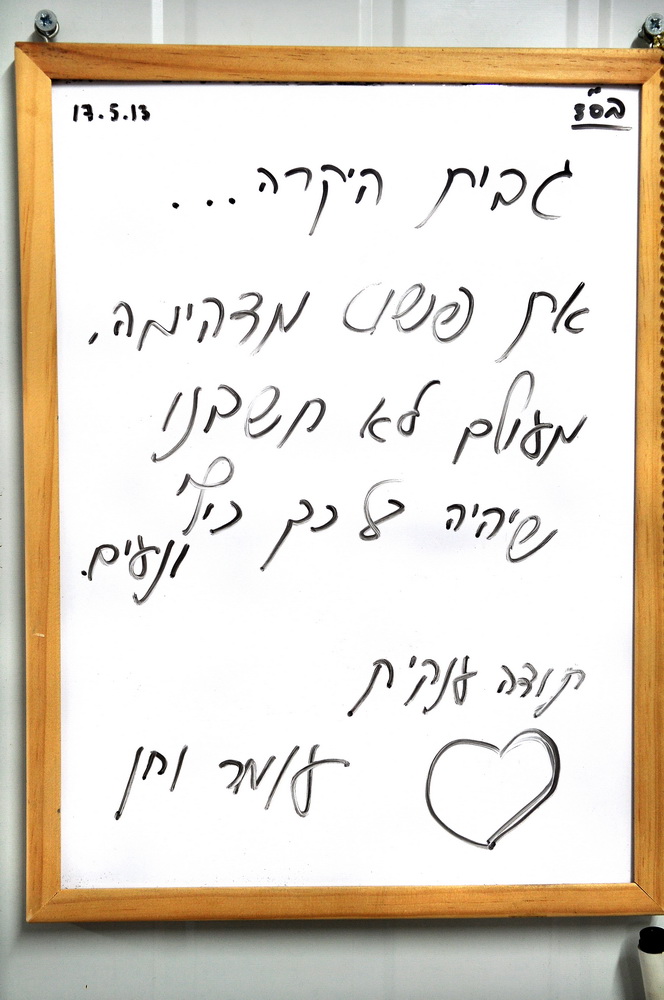 בס"ד
17.5.13
גבית היקרה...
את פשוט מדהימה,
מעולם לא חשבנו
שיהיה כל כך כיף
ונעים.
תודה ענקית
עומר וחן